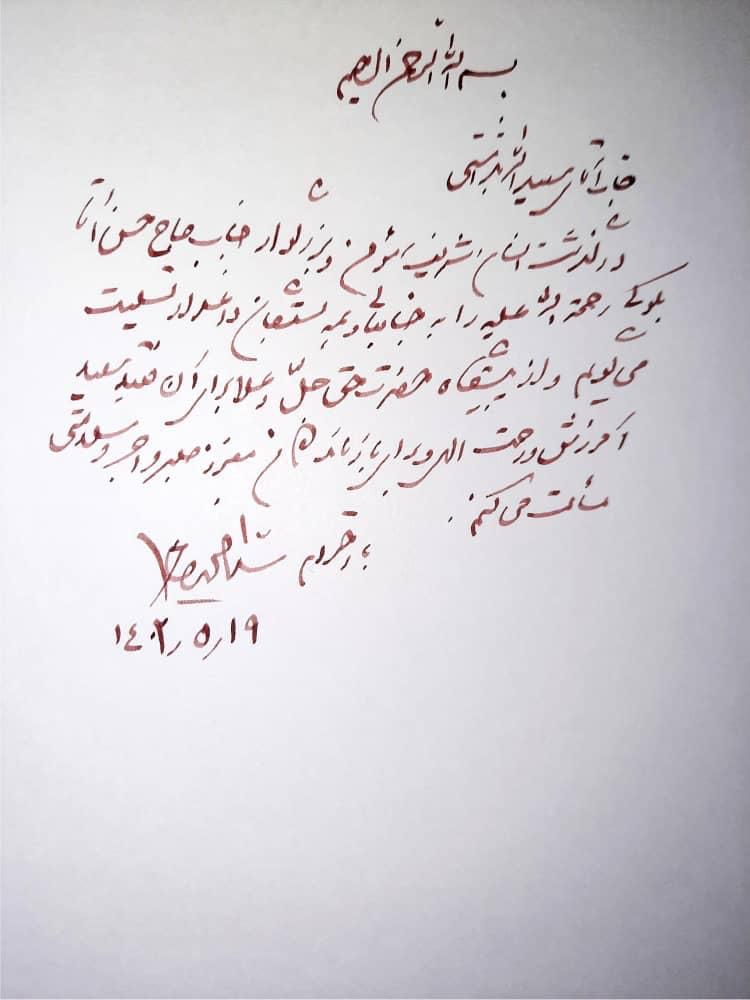 بسم الله الرحمن الرحیم
جناب آقای سعید الله بداشتی
درگذشت انسان شریف، مؤمن و بزرگوار جناب حاج حسن آقا
ملوکی رحمة الله علیه را به جنابعالی و همه بستگان داغدار تسلیت
می گویم و از پیشگاه حضرت حق جلّ و علا برای آن فقید سعید
آمرزش و رحمت الهی و برای بازماندگان معزز صبر و اجر و سلامتی
مسألت می کنم.
با احترام
۱۴۰۲/۵/۱۹